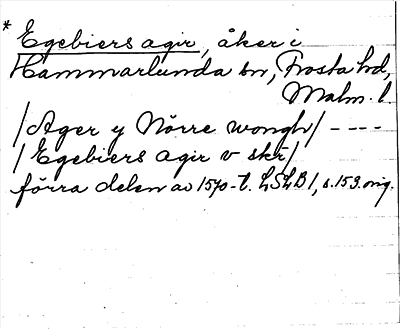 * Egebiers agir, åker i
Hammarlunda sn, Frosta hd,
Malm. l.
/Ager y Nörre wongh/ ----
/Egebiers agir v skr/
förra delen av 1570-t. LSLB 1, s. 153. orig.